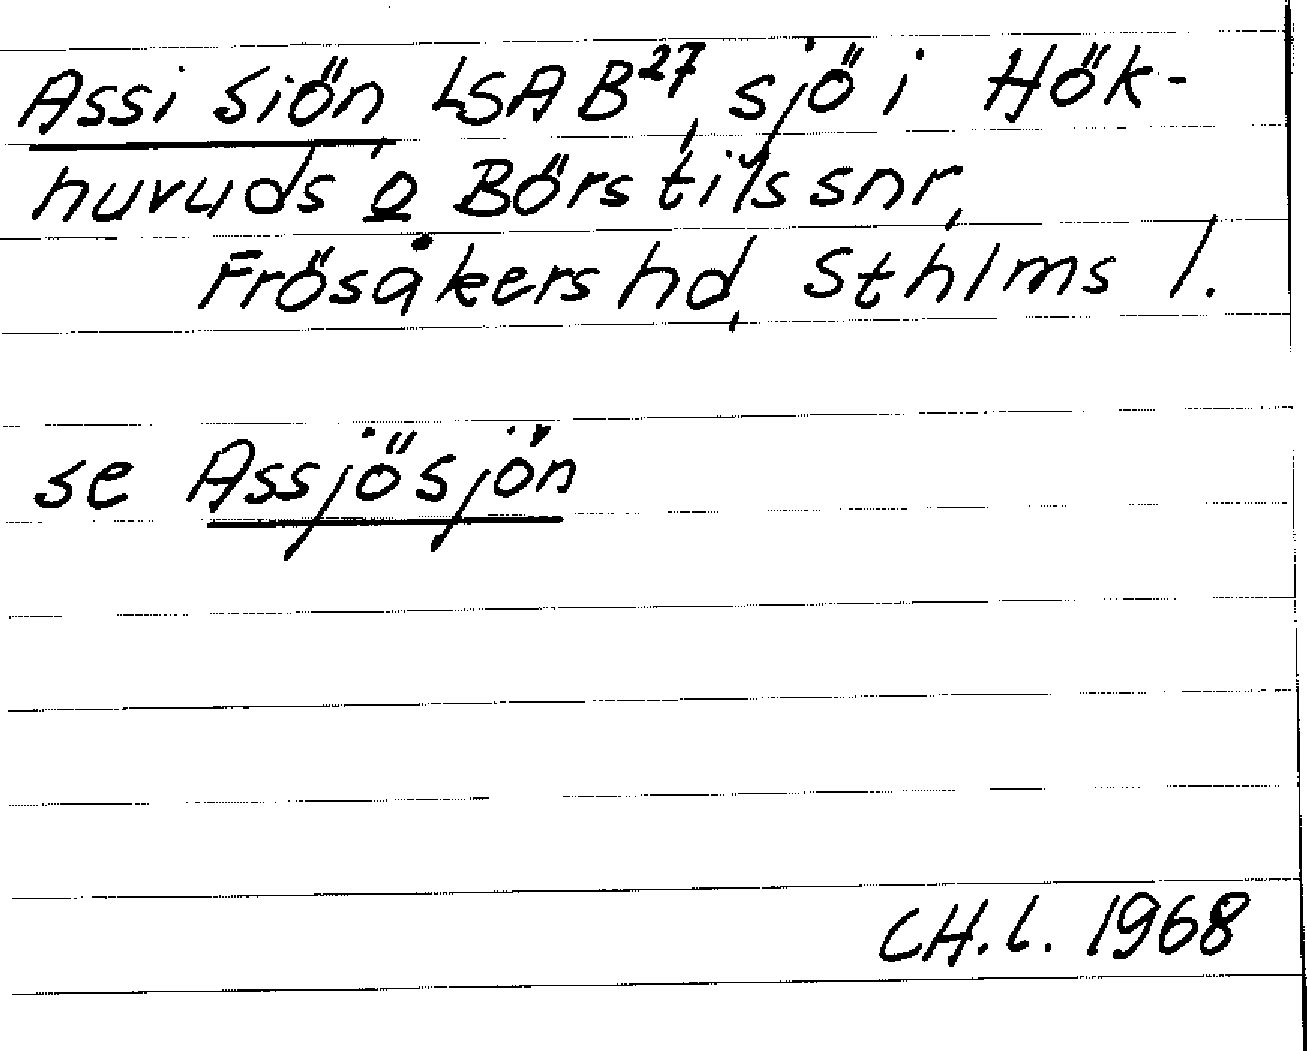 Assi siön, LSA B27, sjö i Hök-
huvuds o Börstils snr,
Frösåkers hd, Sthlms l.
se Assjösjön
CH.L. 1968